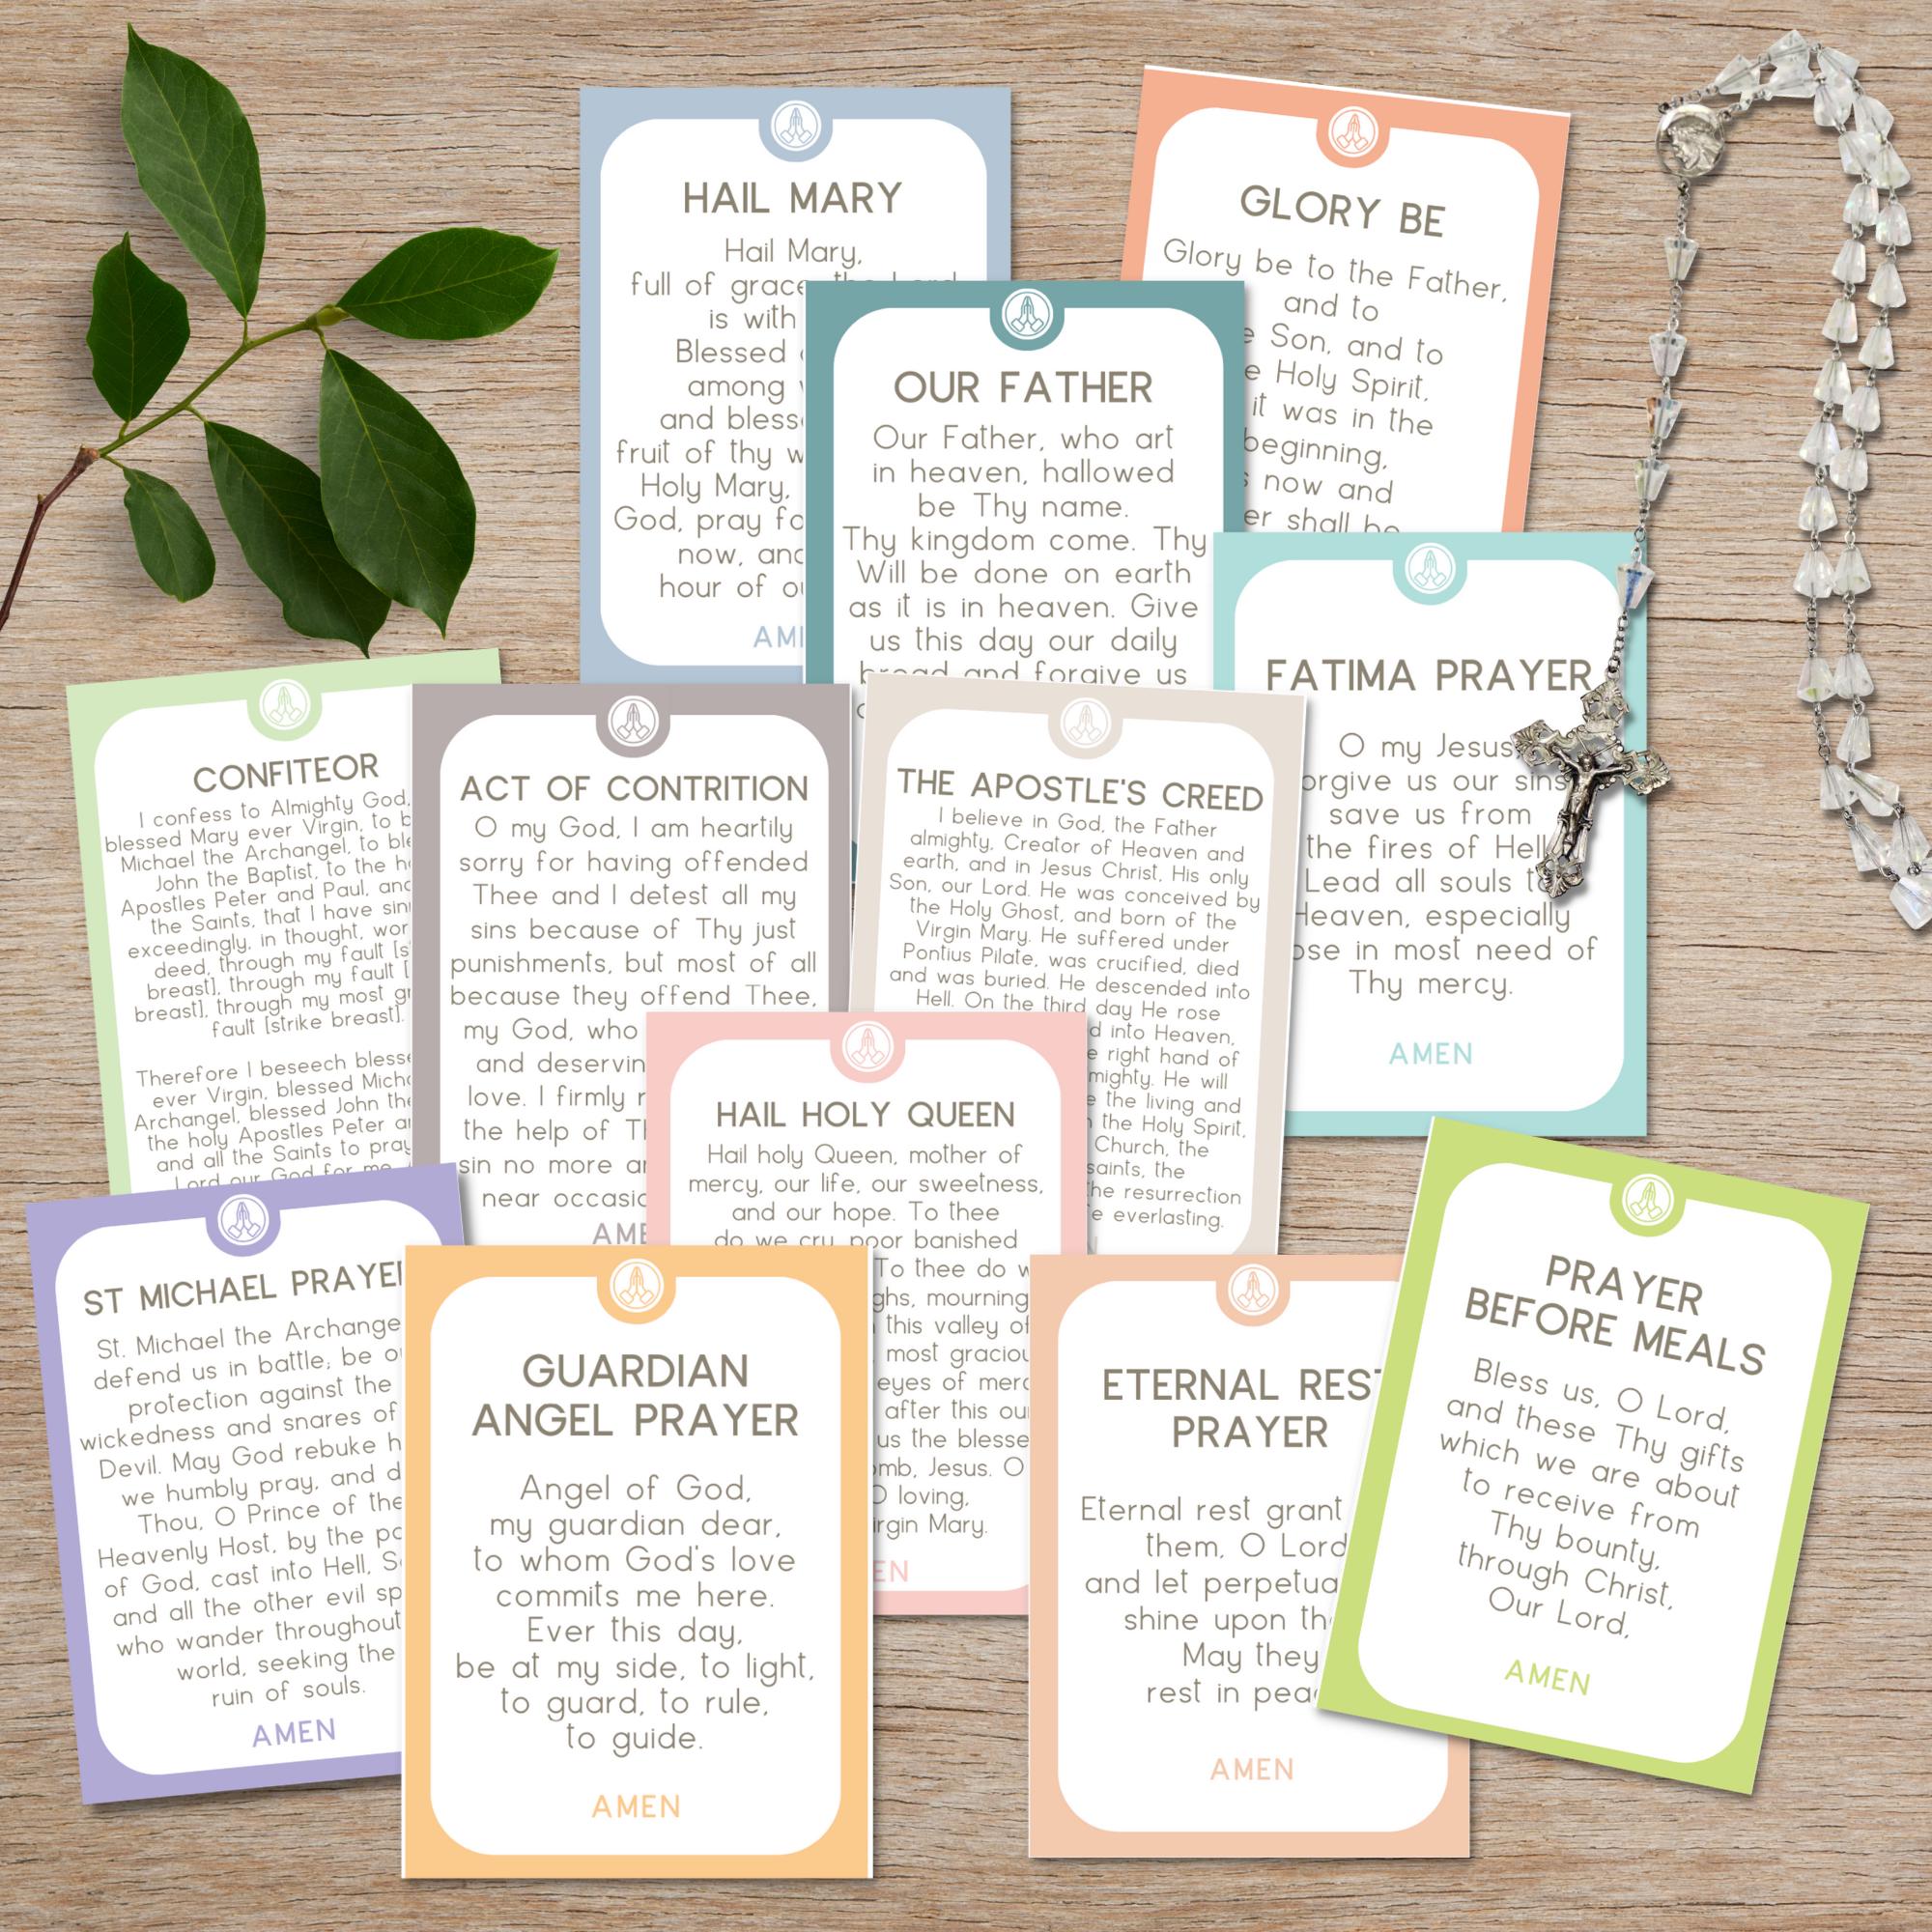 HAIL MARY
Hail Mary,
full of grace the Lord
is with
Blessed
among
and
fruit of thy
Holy Mary,
God, pray
now,
hour of
GLORY BE
Glory be to the Father,
and to
Son, and to
Holy Spirit,
it was in the
beginning,
now and
shall be
OUR FATHER
Our Father, who art
in heaven, hallowed
be Thy name.
Thy kingdom come. Thy
Will be done on earth
as it is in heaven. Give
us this day our daily
bread and forgive us
FATIMA PRAYER
O my Jesus
us our sins
save us from
the fires of Hell
Lead all souls
Heaven, especially
in most need of
Thy mercy.
AMEN
CONFITEOR
I confess to Almighty God,
blessed Mary ever Virgin, to
Michael the Archangel, to
John the Baptist, to the
Apostles Peter and Paul,
the Saints, that I have
exceedingly, in thought,
deed, through my fault
breast], through my fault
breast], through my most
fault [strike breast].
Therefore I beseech
ever Virgin, blessed
Archangel, blessed John
the holy Apostles Peter
and all the Saints to pray
Lord our God for me
ACT OF CONTRITION
O my God, I am heartily
sorry for having offended
Thee and I detest all my
sins because of Thy just
punishments, but most of all
because they offend Thee,
my God, who
and
love. I firmly
the help of
sin no more
near
THE APOSTLE'S CREED
I believe in God, the Father
almighty, Creator of Heaven and
earth, and in Jesus Christ, His only
Son, our Lord. He was conceived by
the Holy Ghost, and born of the
Virgin Mary. He suffered under
Pontius Pilate, was crucified, died
and was buried. He descended into
Hell. On the third day He rose
into Heaven,
right hand of
He will
the living and
the Holy Spirit,
Church, the
the
resurrection
everlasting.
HAIL HOLY QUEEN
Hail holy Queen, mother of
mercy, our life, our sweetness,
and our hope. To thee
do we cry poor banished
To thee do
mourning
this valley of
most
eyes of
after this
us the
Jesus. O
O loving,
Mary.
ST MICHAEL PRAYER
St. Michael the
defend us in battle; be
protection against the
wickedness and snares of
Devil. May God rebuke
we humbly pray, and
Thou, O Prince of the
Heavenly Host, by the
of God, cast into Hell,
and all the other evil
who wander throughout
world, seeking the
ruin of souls.
AMEN
GUARDIAN
ANGEL PRAYER
Angel of God,
my guardian dear,
to whom God's love
commits me here.
Ever this day,
be at my side, to light,
to guard, to rule,
to guide.
AMEN
ETERNAL REST
PRAYER
Eternal rest grant
them, O Lord
and let
shine upon
May they
rest in
AMEN
PRAYER
BEFORE MEALS
Bless us, O Lord,
and these Thy gifts
which we are about
to receive from
Thy bounty,
through Christ,
Our Lord,
AMEN